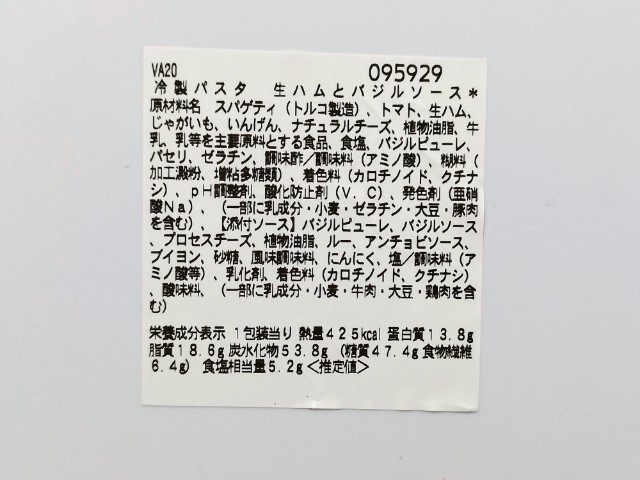 VA20 095929
冷製パスタ 生ハムとバジルソース*
原材料名 スパゲティ(トルコ製造)、トマト、生ハム、
じゃがいも、いんげん、ナチュラルチーズ、植物油脂、牛
乳、乳等を主要原料とする食品、食塩、バジルピューレ、
パセリ、ゼラチン、調味酢/調味料(アミノ酸)、糊料(
加工澱粉、増粘多糖類)、着色料(カロチノイド、クチナ
シ)、pH調整剤、酸化防止剤(V.C)、発色剤(亜硝
酸Na)、(一部に乳成分・小麦・ゼラチン・大豆・豚肉
を含む)、【添付ソース】バジルピューレ、バジルソース
、プロセスチーズ、植物油脂、ルー、アンチョビソース、
ブイヨン、砂糖、風味調味料、にんにく、塩/調味料(ア
ミノ酸等)、乳化剤、着色料(カロチノイド、クチナシ)
、酸味料、(一部に乳成分・小麦・牛肉・大豆・鶏肉を含
む)
栄養成分表示 1包装当り 熱量425kcal 蛋白質13.8g
脂質18.6g 炭水化物53.8g (糖質47.4g 食物繊維
6.4g) 食塩相当量5.2g<推定値>